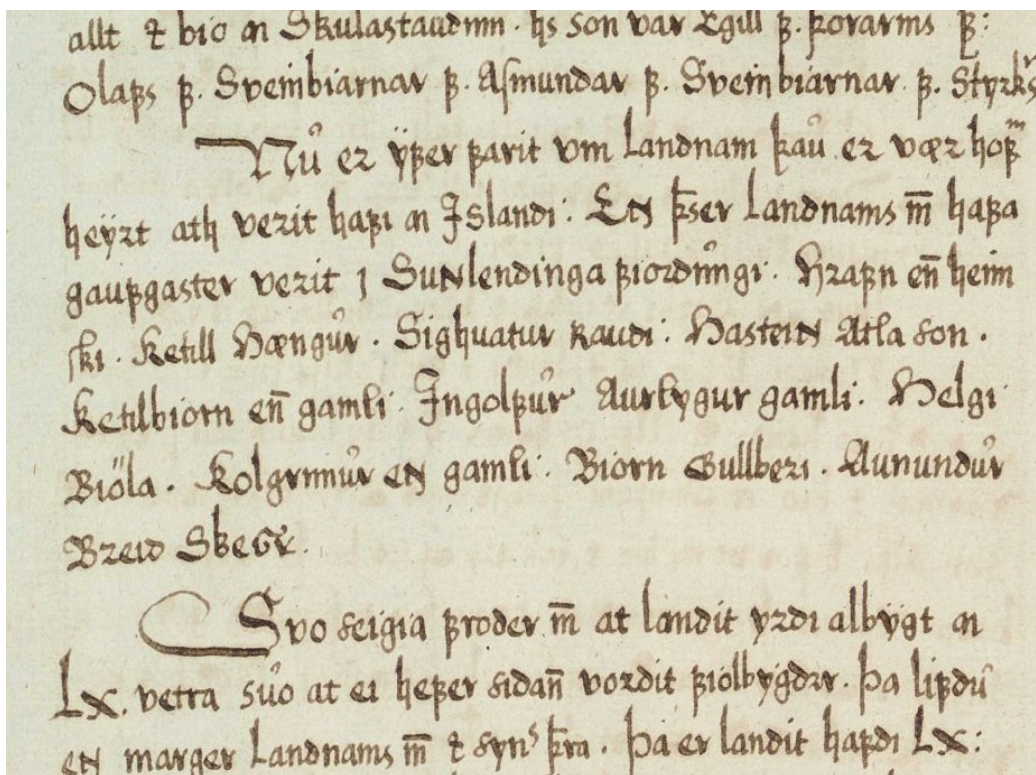 allt ⁊ bio a Skulastaudum. hs son var Egill ꝼ. þorarins ꝼ:
Olaꝼs ꝼ. Sveinbiarnar ꝼ. Aſmundar ꝼ. Sveinbiarnar ꝼ. Styrks
Nu er ÿꝼer ꝼarit vm landnam þau er vær hoꝼm
heÿrt ath verit haꝼi a Islandi: En þser landnams m̄ haꝼa
gauꝼgaster verit j Sunlendinga ꝼiordungi. Hraꝼn en̄ heim
ſki. Ketill Hængur. Sighuatur Raudi: Hastein Atla son.
Ketilbiorn en̄ gamli. Ingolꝼur Aurlygur gamli: Helgi
Biöla. Kolgrimur en gamli: Biorn Gullberi. Aunundur
Breid Skegr.
Svo seigia ꝼroder m̄ at landit yrdi albygt a
LX. vetra suo at ei heꝼer sidan̄ vordit ꝼiolbygdrr. Þa liꝼdu
en marger Landnams m̄ ⁊ synˢ þra. Þa er landit haꝼdi LX: